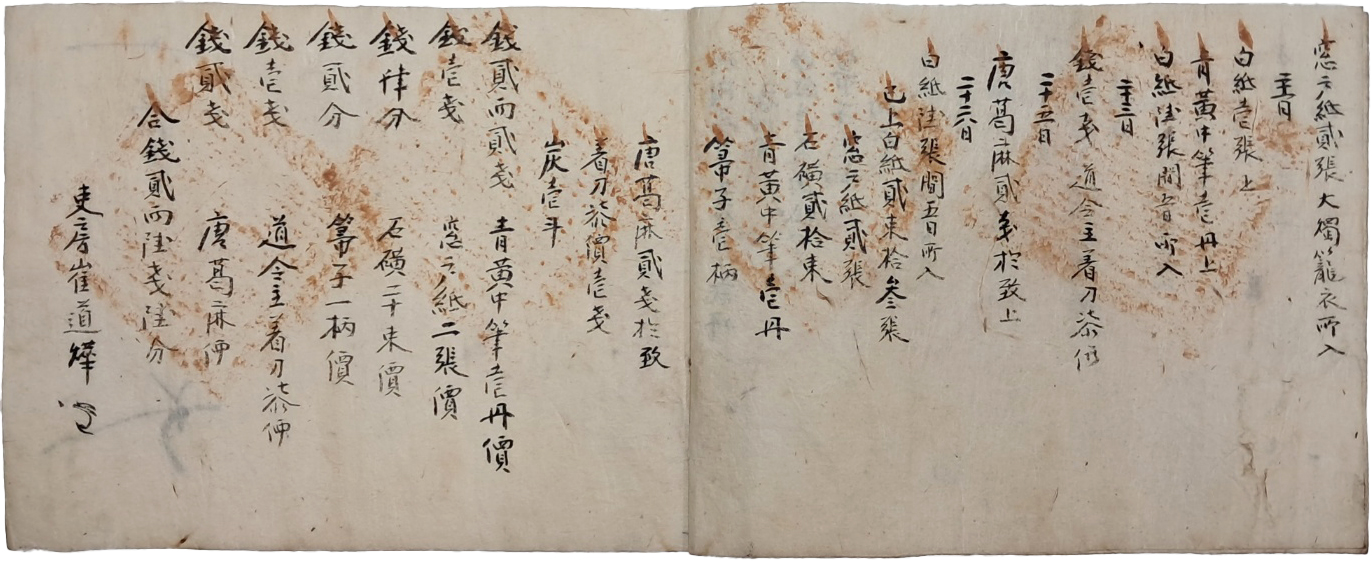 窓戶紙貳張大燭籠衣所入
二十一日
白紙壹張上
靑黃中筆壹丹上
白紙陸張間五日所入
二十三日
錢壹戔 道令主着刀柒価
二十五日
唐葛麻貳戔於致上
二十六日
白紙陸張間五日所入
已上白紙貳束拾參張
窓戶紙貳張
石磺貳拾束
靑黃中筆壹丹
箒子壹柄
唐葛麻貳戔於致
着刀柒價壹戔
炭壹斗
錢貳兩貳戔 靑黃中筆壹丹價
錢壹戔 窓戶紙二張價
錢肆分 石磺二十束價
錢貳分 箒子一柄價
錢壹戔 道令主着刀柒価
錢貳戔 唐葛麻価
合錢貳兩陸戔陸分
吏房崔道燁